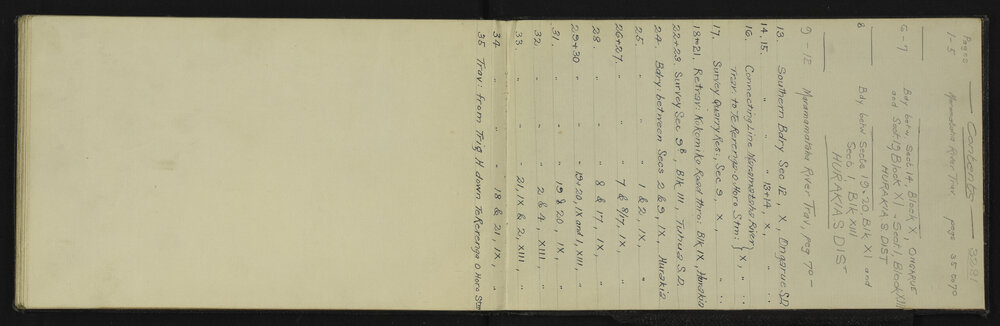 Contents — 3281
Pages
1-5 Maramataha River Trav. page 35 to 70
6-7 Bdy. betw. Sect 14, Block X, ONGARUE
and Sect 19 Block XI, & Sect 1, Block XIII
HURAKIA S DIST
8 Bdy betw Sects 19-20 Blk XI and
Sect 1 Blk XIII
HURAKIA S DIST
9-12 Maramamataha River Trav, pag 70-
13. Southern Bdry Sec 12, X, Ongarue S.D
14, 15. " " 13+14, X, " ..
16. Connecting Line Maramataha River
Trav. to Te Rerenga-o-Horo Stm: } X, " ..
17. Survey Quarry Res:, Sec 9, X " ..
18to21. Retrav: Kokomiko Road thro: Blk IX, Hurakia
22+23. Survey Sec 9B, Blk III, Tuhua S.D.
24. Bdry: between Secs 2 & 9, IX, Hurakia
25. " " 1 & 2, IX, "
26+27. " " 7 & 8/17, IX "
28. " " 8 & 17, IX, "
29+30 " " 19+20, IX and 1, XIII, "
31. " " 19 & 20, IX, "
32. " " 2 & 4, XIII, "
33. " " 21, IX & 2, XIII, "
34. " " 18 & 21, IX, "
35 Trav: from Trig H down Te Rerenga O Horo Stm